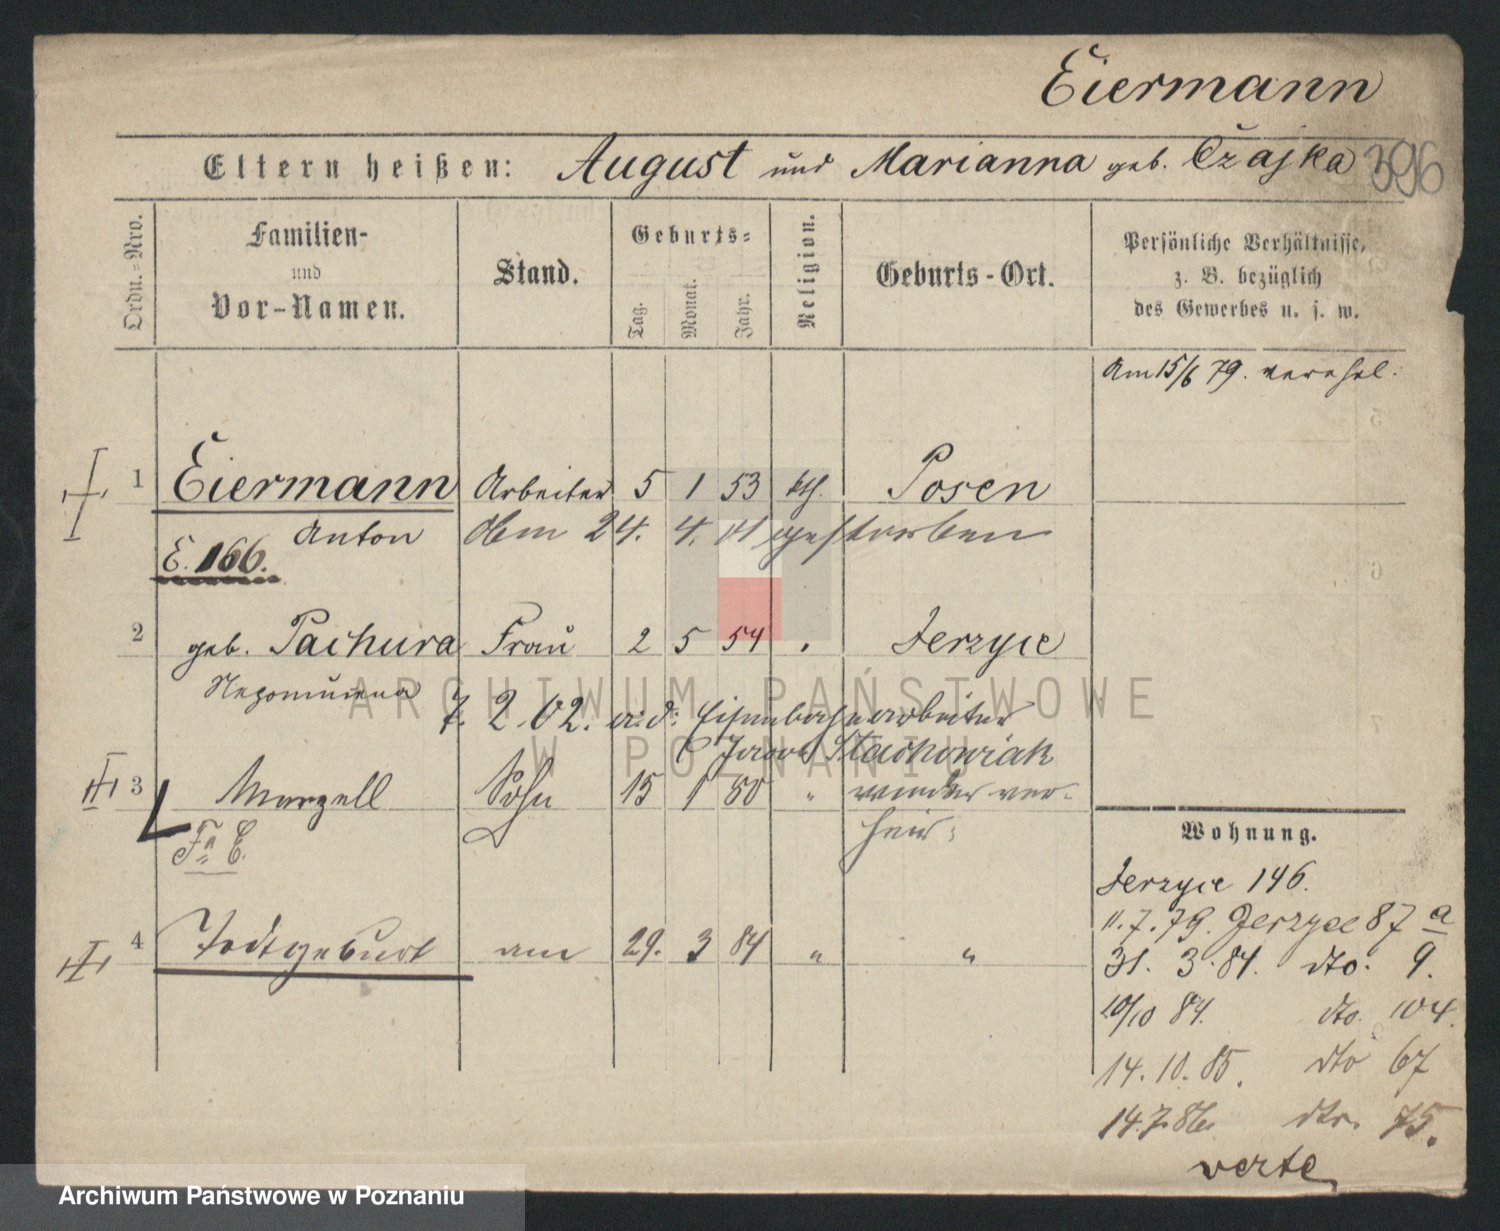 Eiermann
Eltern heißen: August und Marianna geb. Czajka 396
Ordn.-Nro.
Familien- und Vor-Namen.
Stand.
Geburts-
Tag. Monat. Jahr.
Religion.
Geburts-Ort.
Persönliche Verhältnisse,
z. B. bezüglich
des Gewerbes u. s. w.
Am 15/6 79. verehel.
I 1 Eiermann Arbeiter 5 1 53 kth. Posen
Anton
24. 4. gestorben
E. 166.
2 geb. Pachura Frau 2 5 54 Jerzyce
Nepomucena
7. 2. 02. a. d. Eisenbahnarbeiter
Stachowiak
II 3 Marzell Sohn 15 1 80 " wieder ver-
heir:
F. E.
II 4 Todtgeburt am 29. 3 84 " "
Wohnung.
Jerzyce 146.
11.7.79. Jerzyce 87 a
31. 3. 84. dto. 9.
10/10 84. dto. 104.
14. 10. 85. dto 67
14.7.86. dto. 75.
verte
ARCHIWUM PAŃSTWOWE
W POZNANIU
Archiwum Państwowe w Poznaniu